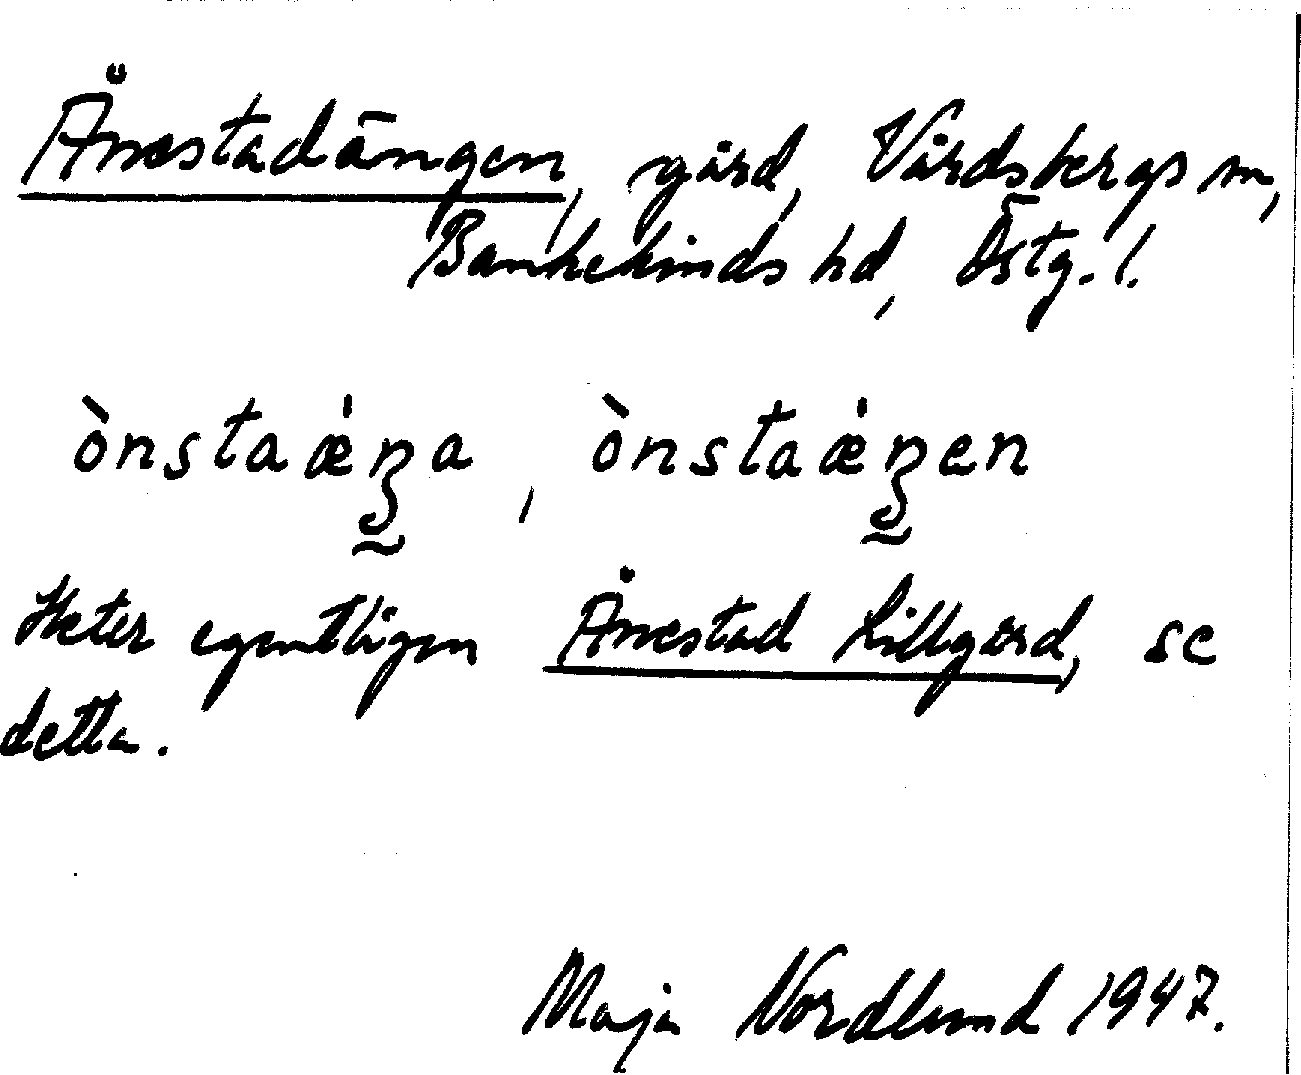 Ånestadängen, gård, Vårdsbergs sn,
Bankekinds hd, Östg. l.
ònstaǽŋa, ònstaǽŋen
Heter egentligen Ånestad Lillgård, se
detta.
Maja Nordlund 1947.